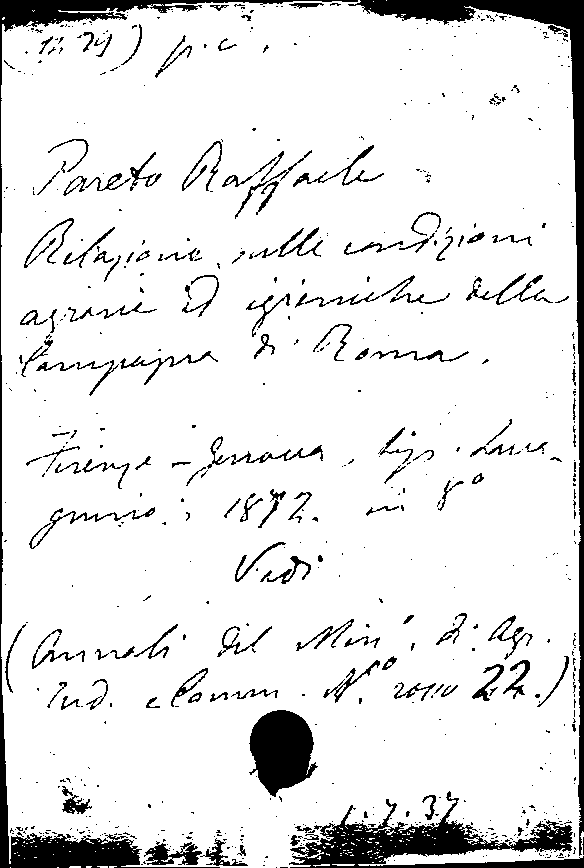 (12.29) p.c.
Pareto Raffaele
Relazione sulle condizioni
agrarie ed igieniche della
Campagna di Roma.
Firenze - Genova, tip. Lava-
gnino; 1872. in 8º
Vedi
(Annali del Min. di Agr.
Ind. e Comm. Nº rosso 22.)
1.7.37